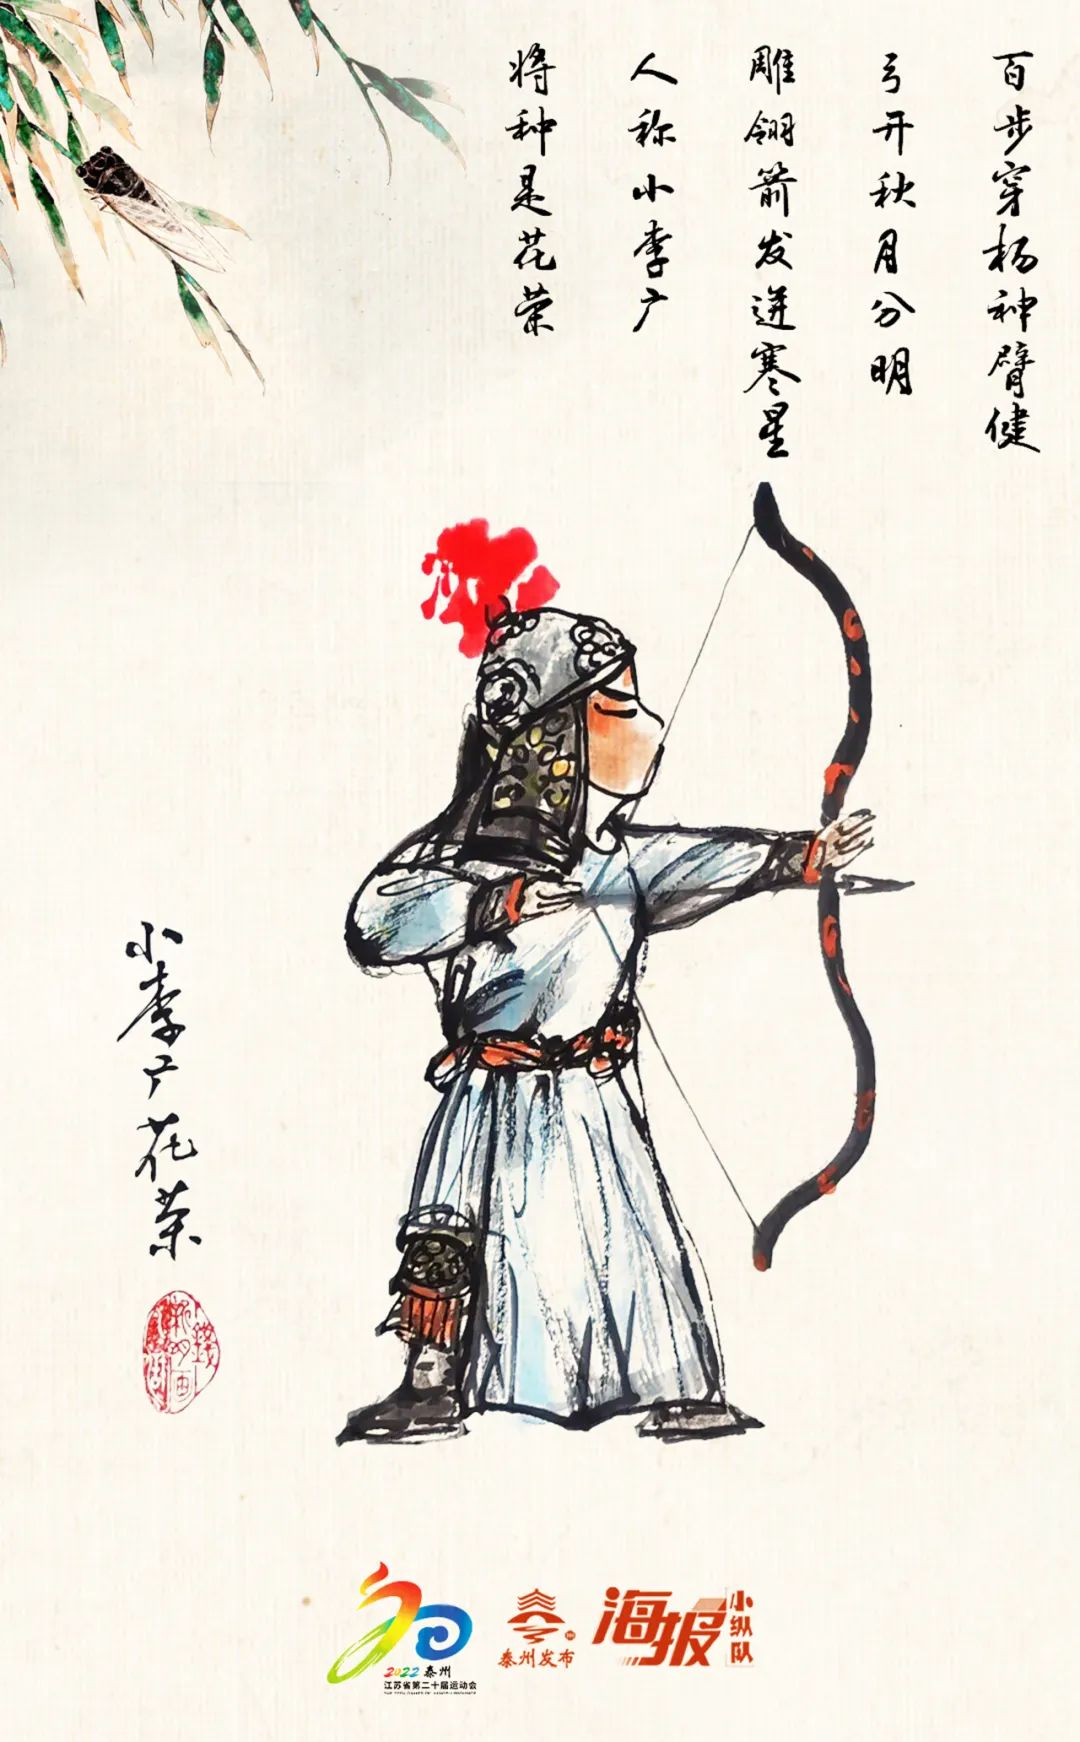 百步穿杨神臂健
弓开秋月分明
雕翎箭发迸寒星
人称小李广
将种是花荣
小李广花荣
2022 泰州
江苏省第二十届运动会
泰州发布
海报
小纵队